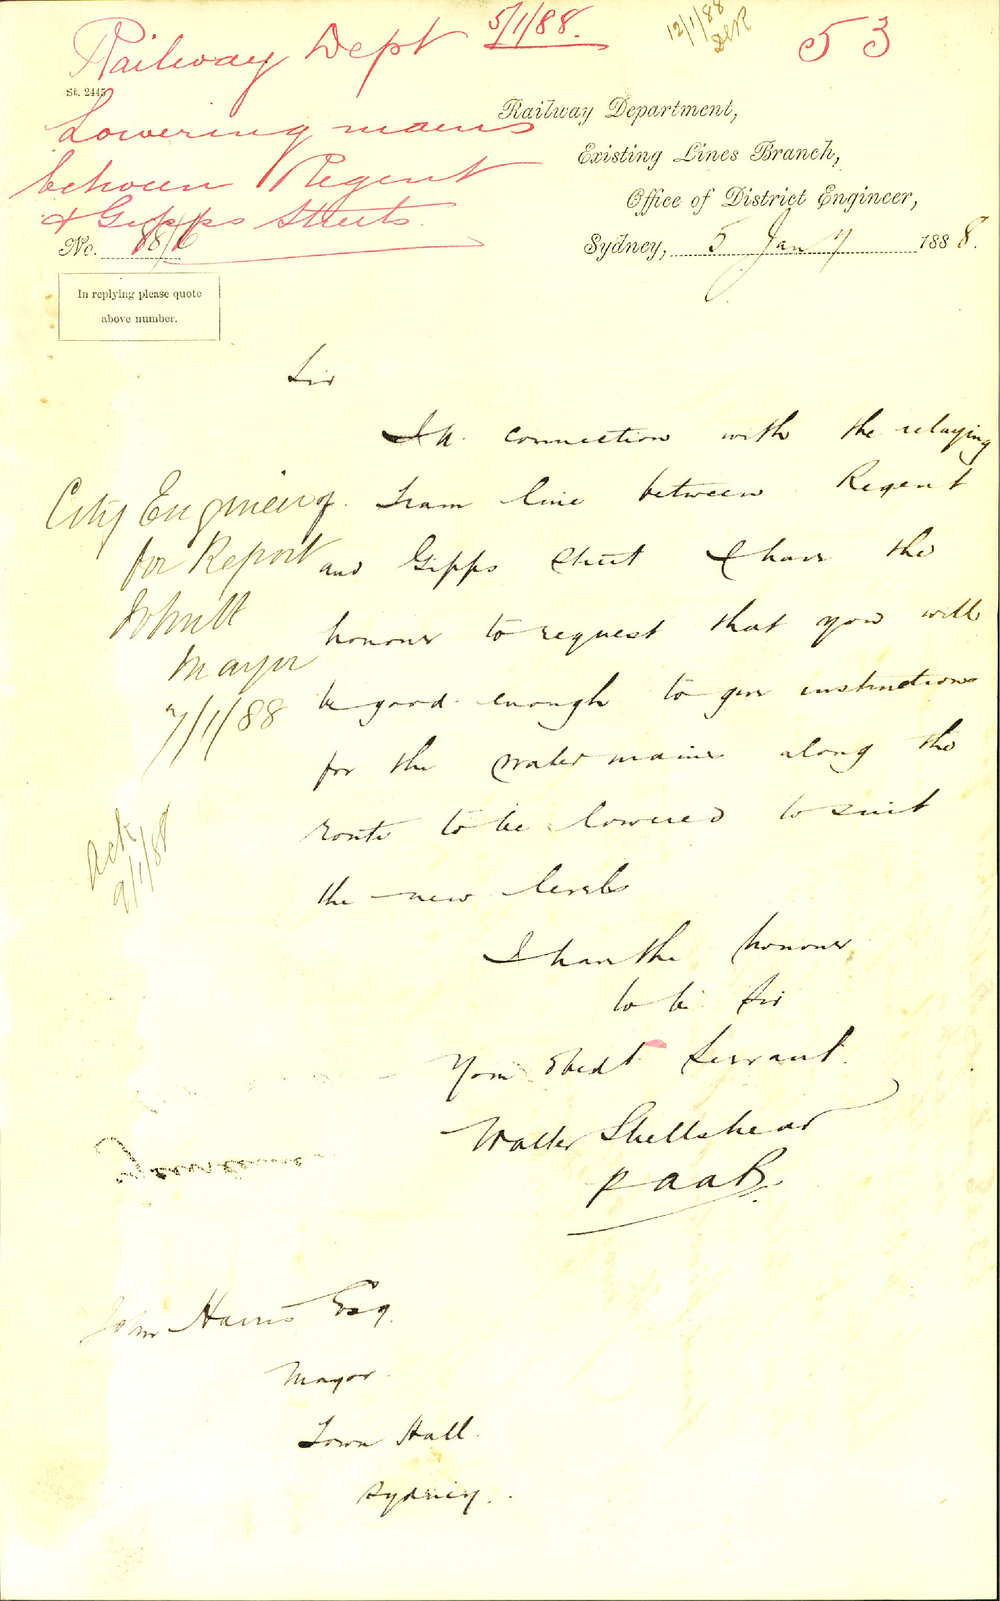 Railway Dept 5/1/88.
12/1/88
53
St. 2445
Lowering mains
between Regent
& Gipps Streets.
Railway Department,
Existing Lines Branch,
Office of District Engineer,
No. 88/6
Sydney, 5 Jany 1888.
In replying please quote
above number.
Sir
In connection with the relaying
of Tram line between Regent
and Gipps Street I have the
honour to request that you will
be good enough to give instructions
for the water mains along the
route to be lowered to suit
the new levels
I have the honour
to be Sir
Your Obedt Servant.
Walter Shellshear
City Engineer
for Report
Mayor
7/1/88
Ack
9/1/88
John Harris Esq.
Mayor
Town Hall.
Sydney.